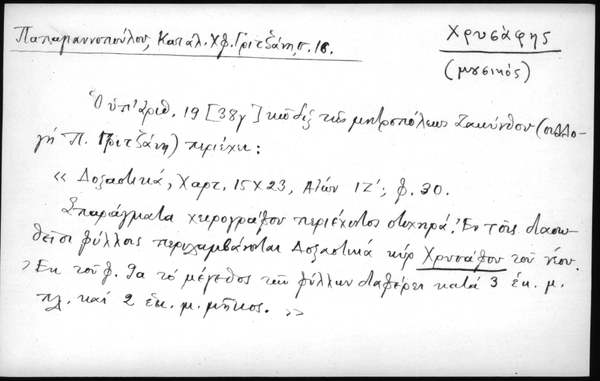 Παπαγιαννοπούλου, Κατάλ. Χφ. Γριτζάνη, σ. 18.
Χρυσάφης
(μουσικός)
Ὁ ὑπ' ἀριθ. 19 [38γ] κῶδιξ τῆς μητροπόλεως Ζακύνθου (συλλο-
γὴ Π. Γριτζάνη) περιέχει:
« Δοξαστικά, Χαρτ. 15 Χ 23, Αἰών ΙΖ'; φ. 30.
Σπαράγματα χειρογράφου περιέχοντος στιχηρά. Ἐν τοῖς διασω-
θεῖσι φύλλοις περιλαμβάνονται Δοξαστικὰ κὺρ Χρυσάφου τοῦ νέου.
Ἐκ τοῦ φ. 9α τὸ μέγεθος τῶν φύλλων διαφέρει κατά 3 ἑκ. μ.
πλ. καί 2 ἑκ. μ. μῆκος. »